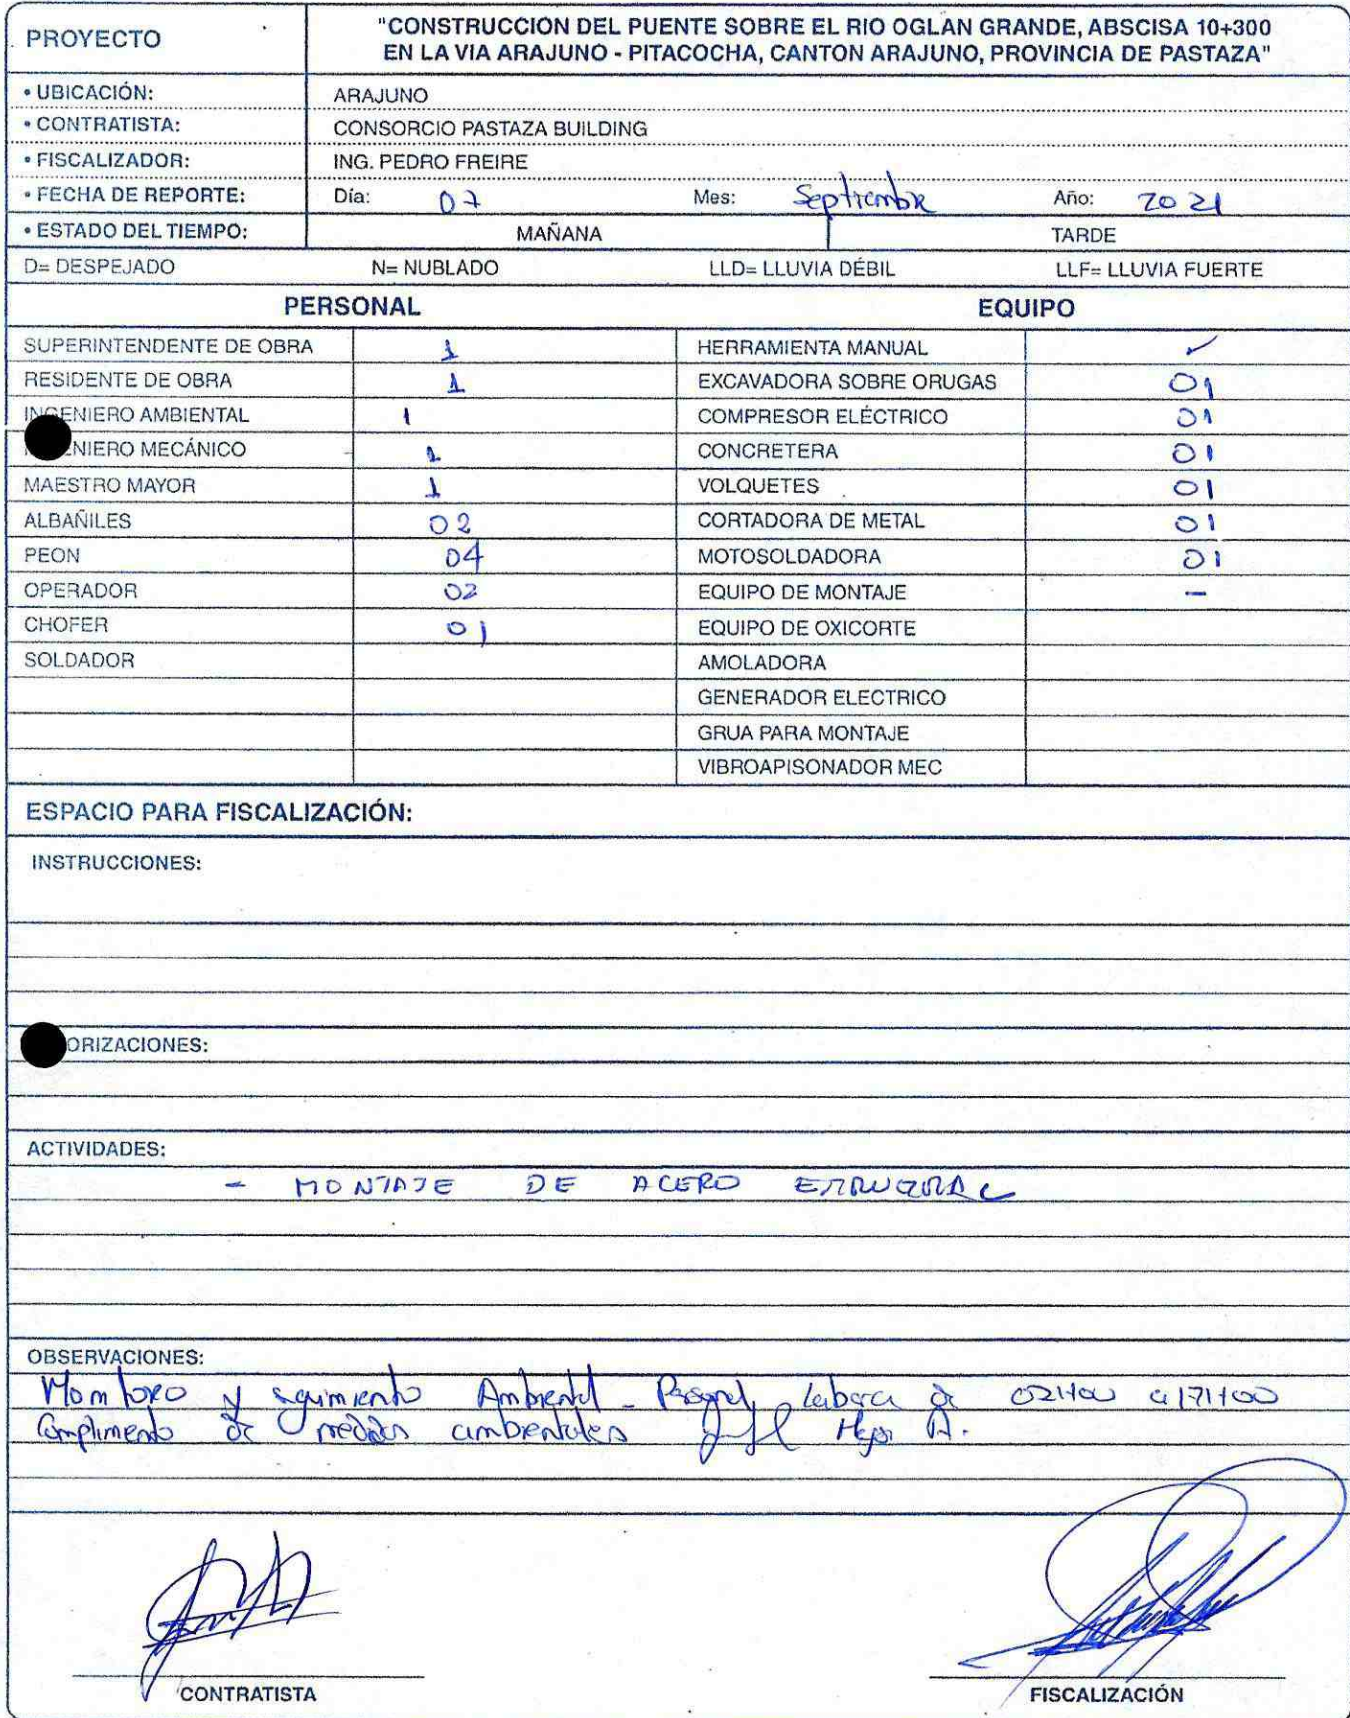 PROYECTO
"CONSTRUCCION DEL PUENTE SOBRE EL RIO OGLAN GRANDE, ABSCISA 10+300
EN LA VIA ARAJUNO - PITACOCHA, CANTON ARAJUNO, PROVINCIA DE PASTAZA"
• UBICACIÓN: ARAJUNO
• CONTRATISTA: CONSORCIO PASTAZA BUILDING
• FISCALIZADOR: ING. PEDRO FREIRE
• FECHA DE REPORTE: Día: 07 Mes: Septiembre Año: 2021
• ESTADO DEL TIEMPO: MAÑANA TARDE
D= DESPEJADO N= NUBLADO LLD= LLUVIA DÉBIL LLF= LLUVIA FUERTE
PERSONAL EQUIPO
SUPERINTENDENTE DE OBRA 1 HERRAMIENTA MANUAL ✓
RESIDENTE DE OBRA 1 EXCAVADORA SOBRE ORUGAS 01
INGENIERO AMBIENTAL 1 COMPRESOR ELÉCTRICO 01
ENIERO MECÁNICO 1 CONCRETERA 01
MAESTRO MAYOR 1 VOLQUETES 01
ALBAÑILES 02 CORTADORA DE METAL 01
PEON 04 MOTOSOLDADORA 01
OPERADOR 02 EQUIPO DE MONTAJE -
CHOFER 01 EQUIPO DE OXICORTE
SOLDADOR AMOLADORA
GENERADOR ELECTRICO
GRUA PARA MONTAJE
VIBROAPISONADOR MEC
ESPACIO PARA FISCALIZACIÓN:
INSTRUCCIONES:
ORIZACIONES:
ACTIVIDADES:
- MONTAJE DE ACERO ESTRUCTURAL
OBSERVACIONES:
y Ambiental - labora de
Cumplimento de medidas ambientales
CONTRATISTA FISCALIZACIÓN